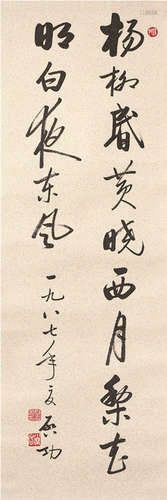 杨柳昏黄晓西月梨花
明白夜东风
一九八七年夏启功